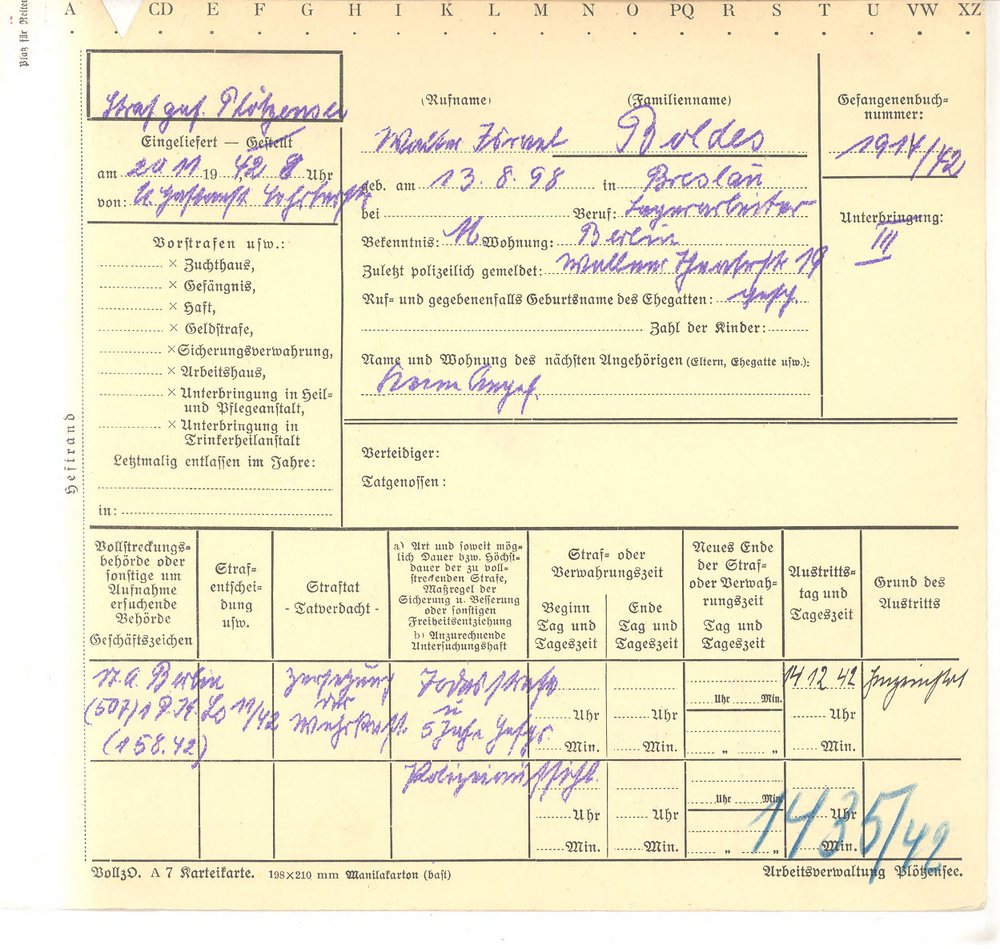 A CD E F G H I K L M N O PQ R S T U VW XZ
Platz für Reiter
Strafgef. Plötzensee
Eingeliefert — Gestellt
am 20 11 1942 8 Uhr
von: U. Haftanst
(Rufname) (Familienname)
Walter Israel Boldes
geb. am 13. 8. 98 in Breslau
bei Beruf: Lagerarbeiter
Bekenntnis: M Wohnung: Berlin
Zuletzt polizeilich gemeldet: Wallner Theaterstr 19
Ruf- und gegebenenfalls Geburtsname des Ehegatten: gesch.
Zahl der Kinder:
Name und Wohnung des nächsten Angehörigen (Eltern, Ehegatte usw.):
Keine Angeh.
Gefangenenbuch-
nummer:
1914/42
Unterbringung:
III
Vorstrafen usw.:
× Zuchthaus,
× Gefängnis,
× Haft,
× Geldstrafe,
× Sicherungsverwahrung,
× Arbeitshaus,
× Unterbringung in Heil-
und Pflegeanstalt,
× Unterbringung in
Trinkerheilanstalt
Letztmalig entlassen im Jahre:
in:
Heftrand
Verteidiger:
Tatgenossen:
Vollstreckungs-
behörde oder
sonstige um
Aufnahme
ersuchende
Behörde
Geschäftszeichen
Straf-
entschei-
dung
usw.
Straftat
- Tatverdacht -
a) Art und soweit mög-
lich Dauer bzw. Höchst-
dauer der zu voll-
streckenden Strafe,
Maßregel der
Sicherung u. Besserung
oder sonstigen
Freiheitsentziehung
b) Anzurechnende
Untersuchungshaft
Straf- oder
Verwahrungszeit
Beginn
Tag und
Tageszeit
Ende
Tag und
Tageszeit
Neues Ende
der Straf-
oder Verwah-
rungszeit
Tag und
Tageszeit
Austritts-
tag und
Tageszeit
Grund des
Austritts
St. A. Berlin
(507) 1 P. K. Ls 11/42
(158.42)
Zersetzung
der
Wehrkraft
Todesstrafe
u
5 Jahre Gefgs.
Polizeiaufsicht
Uhr
Min.
Uhr
Min.
Uhr Min.
„ „
14 12 42
Uhr
Min.
hingerichtet
Uhr
Min.
Uhr
Min.
Uhr Min.
„ „
Uhr
Min.
1435/42
VollzO. A 7 Karteikarte. 198×210 mm Manilakarton (bast)
Arbeitsverwaltung Plötzensee.